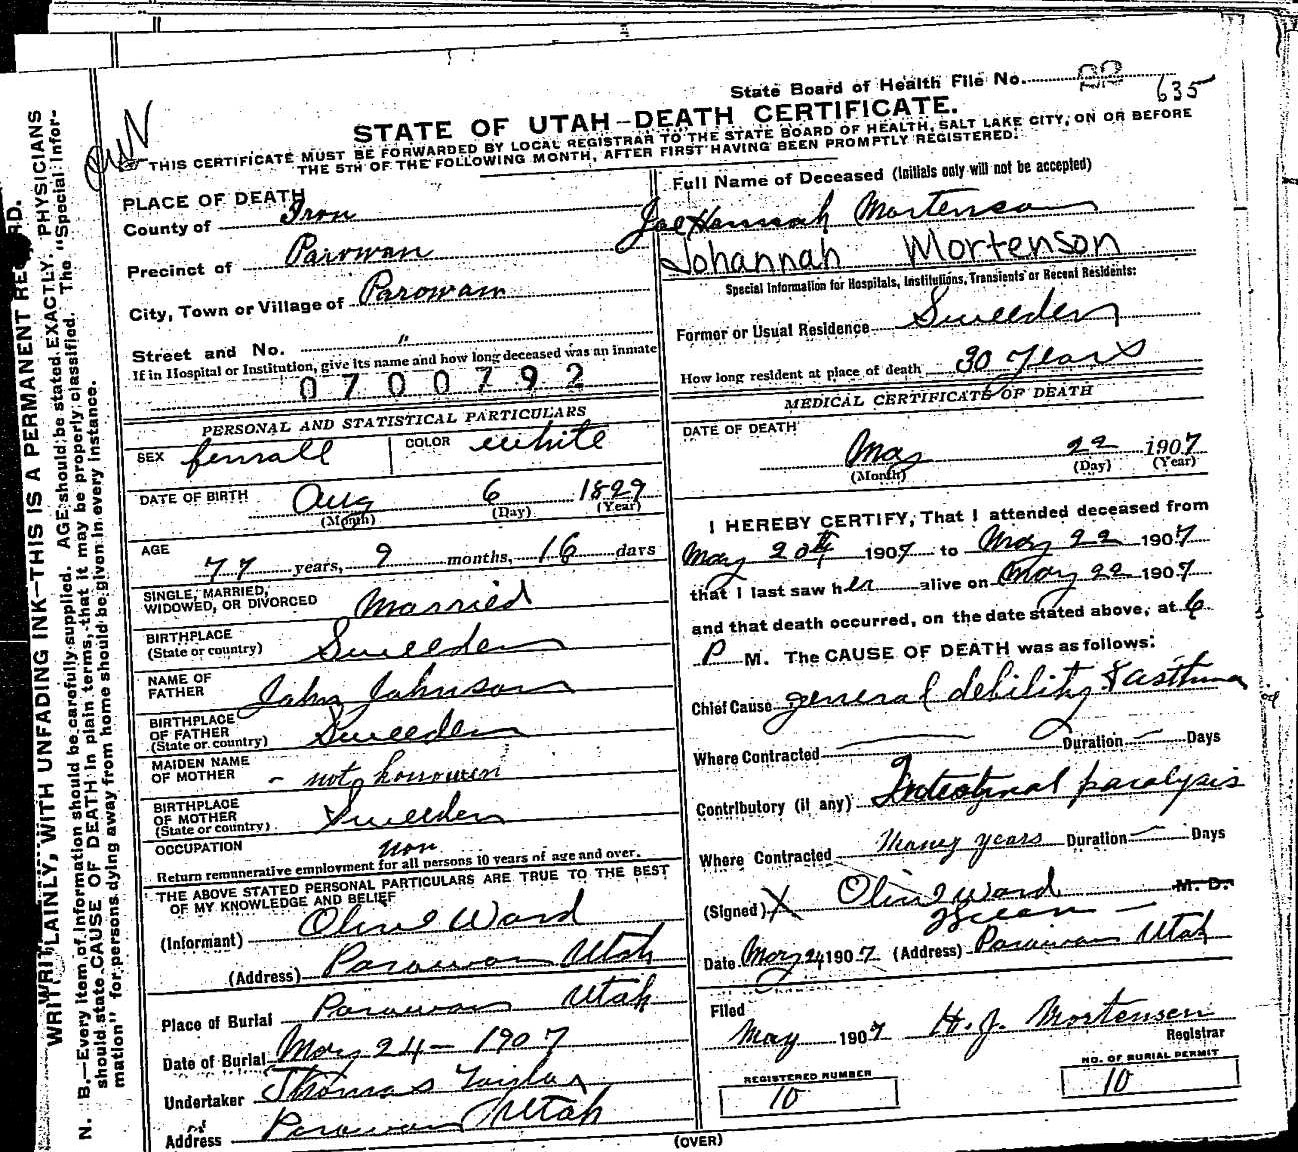 State Board of Health File No. 22
635
STATE OF UTAH-DEATH CERTIFICATE.
THIS CERTIFICATE MUST BE FORWARDED BY LOCAL REGISTRAR TO THE STATE BOARD OF HEALTH, SALT LAKE CITY, ON OR BEFORE
THE 5TH OF THE FOLLOWING MONTH, AFTER FIRST HAVING BEEN PROMPTLY REGISTERED.
WRITE PLAINLY, WITH UNFADING INK—THIS IS A PERMANENT RECORD.
N. B.—Every item of information should be carefully supplied. AGE should be stated EXACTLY. PHYSICIANS
should state CAUSE OF DEATH in plain terms, that it may be properly classified. The "Special Infor-
mation" for persons dying away from home should be given in every instance.
PLACE OF DEATH
County of Iron
Precinct of Parowan
City, Town or Village of Parowan
Street and No. "
If in Hospital or Institution, give its name and how long deceased was an inmate
0700792
PERSONAL AND STATISTICAL PARTICULARS
SEX femall COLOR white
DATE OF BIRTH Aug 6 1829
(Month) (Day) (Year)
AGE 77 years, 9 months, 16 days
SINGLE, MARRIED,
WIDOWED, OR DIVORCED Married
BIRTHPLACE
(State or country) Sweeden
NAME OF
FATHER John Johnson
BIRTHPLACE
OF FATHER
(State or country) Sweeden
MAIDEN NAME
OF MOTHER - not
BIRTHPLACE
OF MOTHER
(State or country) Sweeden
OCCUPATION non
Return remunerative employment for all persons 10 years of age and over.
THE ABOVE STATED PERSONAL PARTICULARS ARE TRUE TO THE BEST
OF MY KNOWLEDGE AND BELIEF
(Informant) Olive Ward
(Address) Parowan Utah
Place of Burial Parowan Utah
Date of Burial May 24 - 1907
Undertaker Thomas Taylor
Address Parowan Utah
Full Name of Deceased (Initials only will not be accepted)
JoeHannah Mortenson
Johannah Mortenson
Special Information for Hospitals, Institutions, Transients or Recent Residents:
Former or Usual Residence Sweeden
How long resident at place of death 30 years
MEDICAL CERTIFICATE OF DEATH
DATE OF DEATH
May 22 1907
(Month) (Day) (Year)
I HEREBY CERTIFY, That I attended deceased from
May 20th 1907 to May 22 1907
that I last saw her alive on May 22 1907
and that death occurred, on the date stated above, at 6
P M. The CAUSE OF DEATH was as follows:
Chief Cause general debility & asthma
Where Contracted Duration Days
Contributory (if any) Intestinal paralysis
Where Contracted Many years Duration Days
(Signed) X Olive Ward M. D.
Date May 24 1907 (Address) Parowan Utah
Filed
May 1907 H. J. Mortensen
Registrar
REGISTERED NUMBER
10
NO. OF BURIAL PERMIT
10
(OVER)